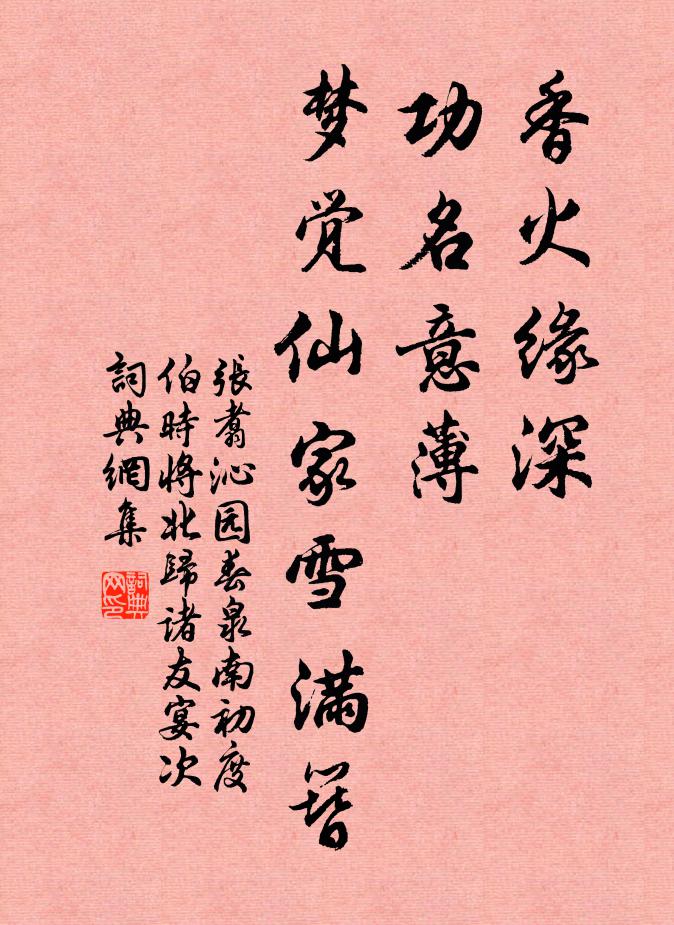 香火缘深
功名意薄
梦觉仙家雪满簪
張翥沁园春泉南初度
伯時将北歸诸友宴次
詞典網集
詞典网印